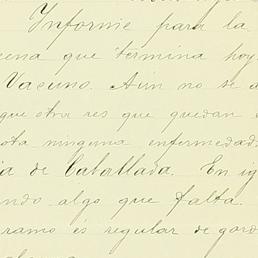 Informe para la
cena que termina hoy
Vacuno. Aún no se a
que otra res que quedan e
ota ninguna enfermedad
ia de Caballada. En ig
ndo algo que falta.
ramo és regular de gord